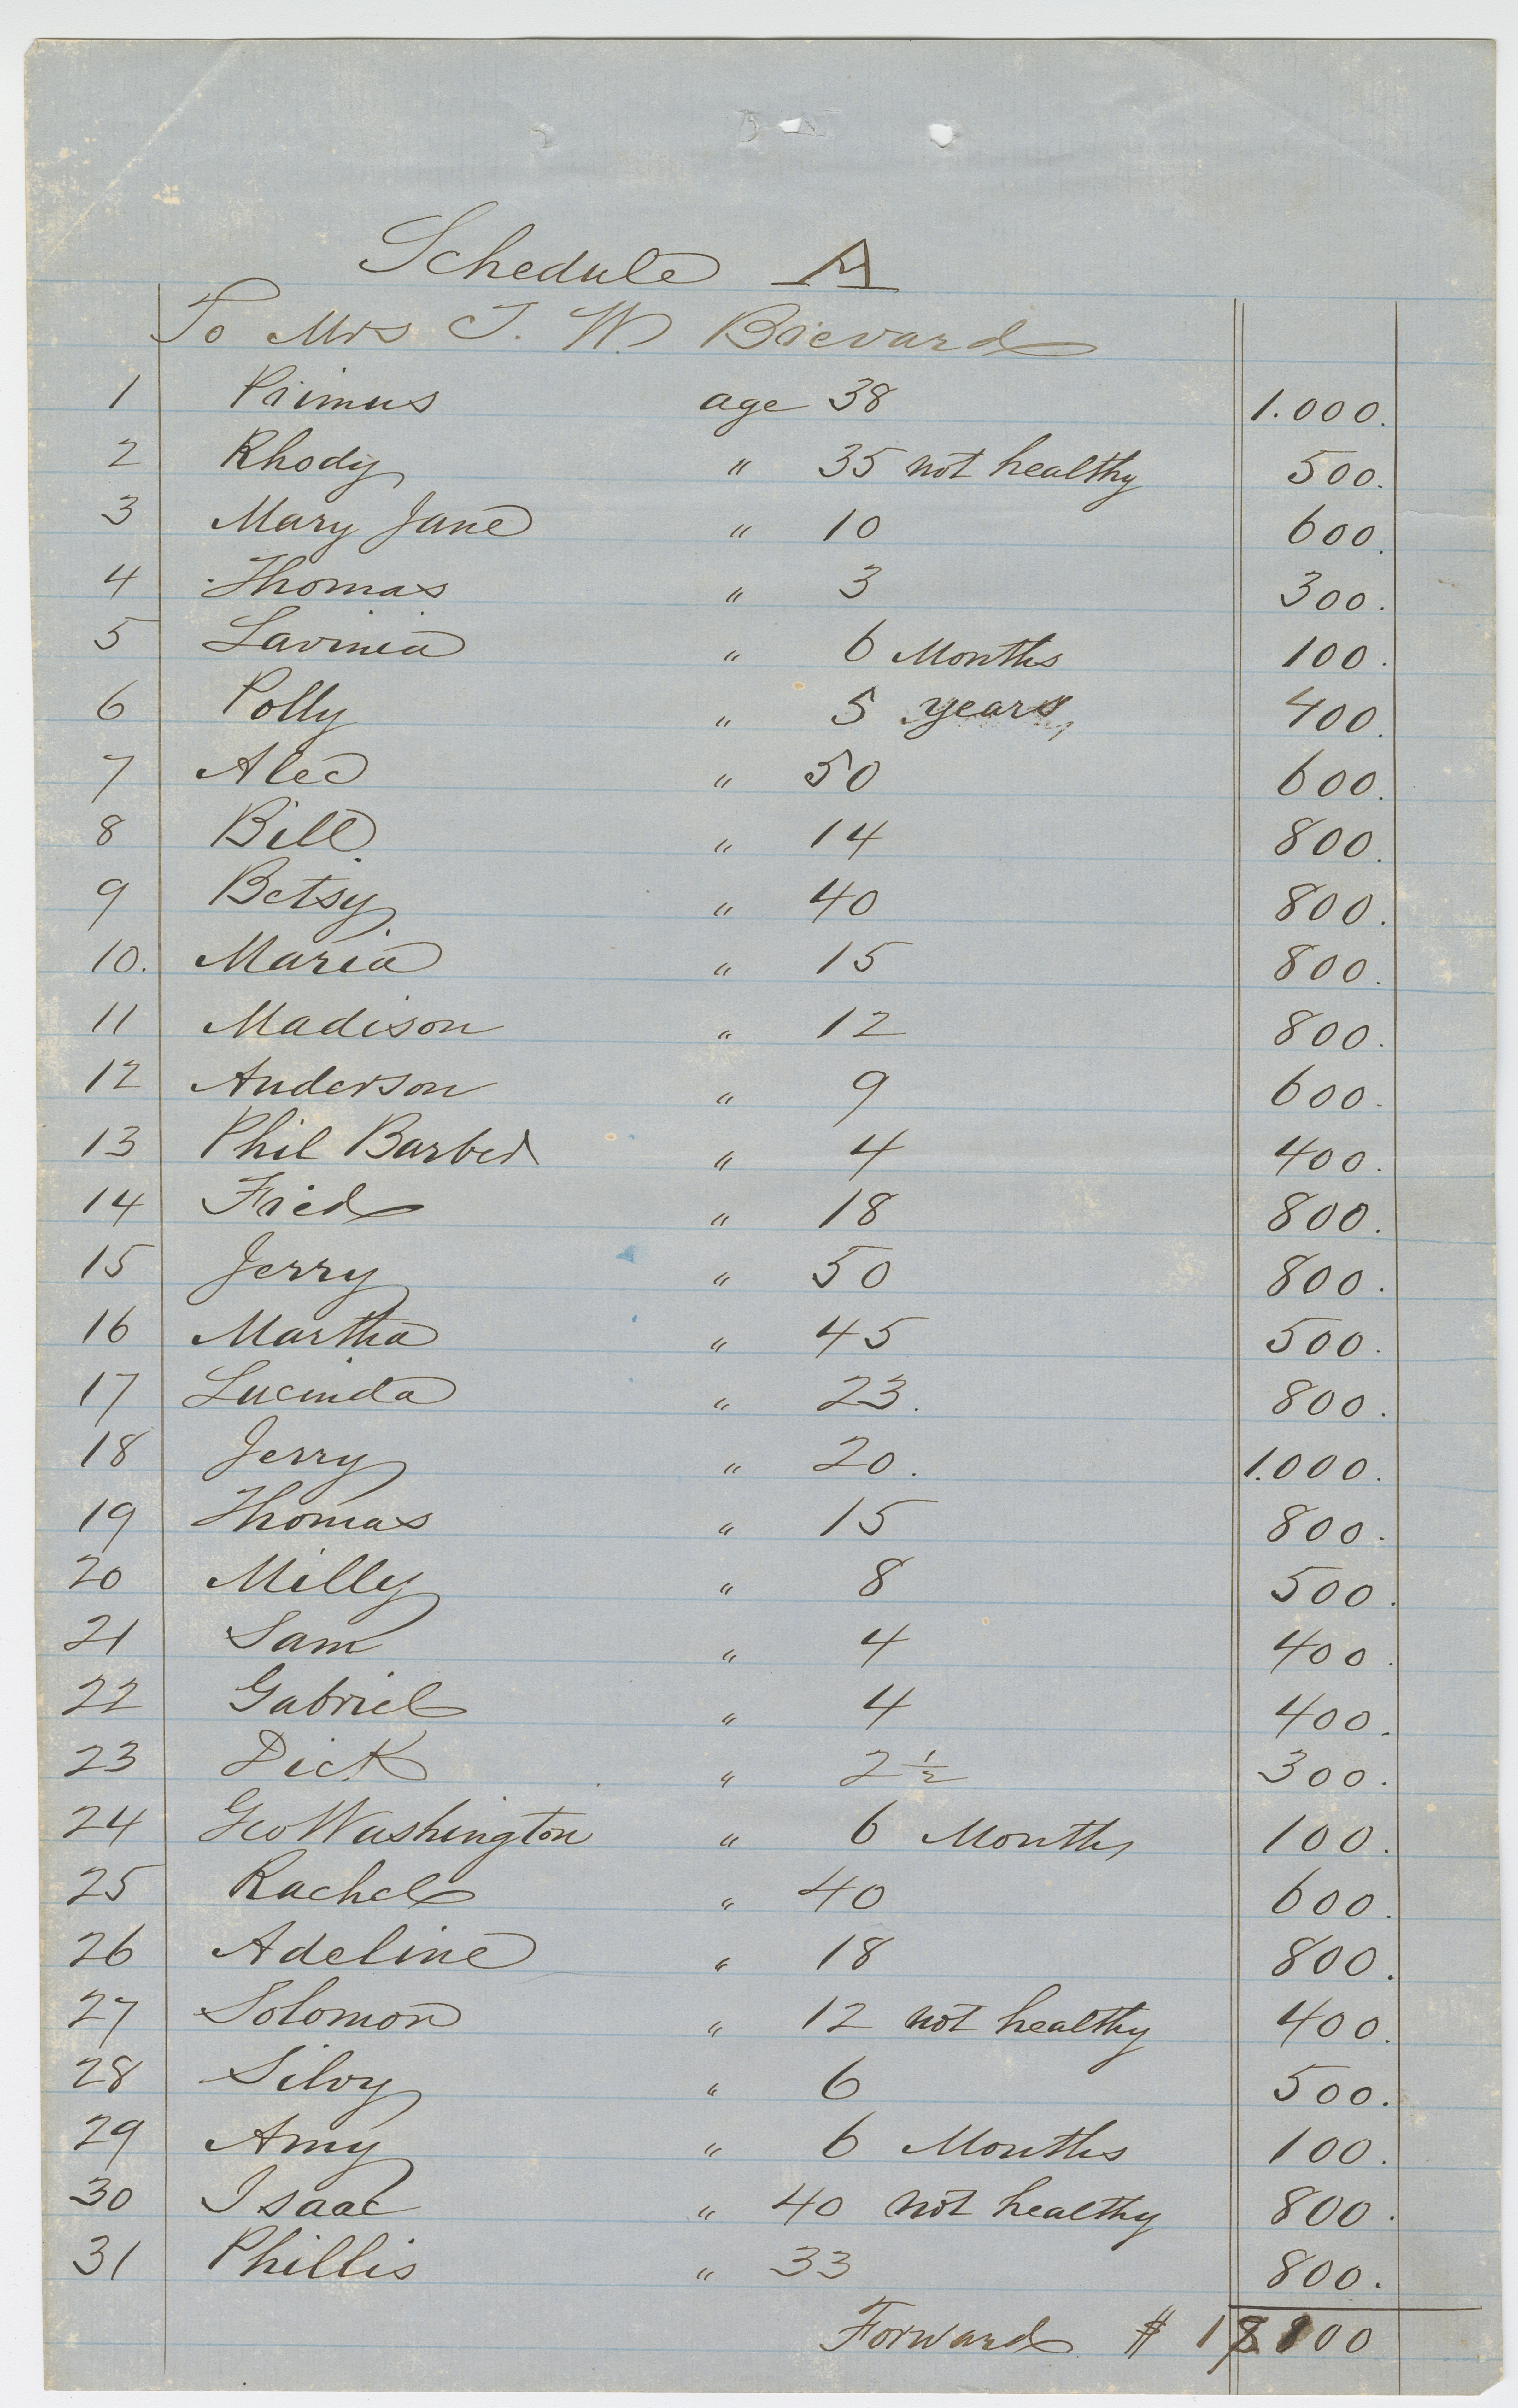 Schedule A
To Mrs T. W. Brevard
1 Primus age 38 1.000.
2 Rhody " 35 not healthy 500.
3 Mary Jane " 10 600.
4 Thomas " 3 300.
5 Lavinia " 6 Months 100.
6 Polly " 5 years, 400.
7 Alec " 50 600.
8 Bill " 14 800.
9 Betsy " 40 800.
10. Maria " 15 800.
11 Madison " 12 800.
12 Anderson " 9 600.
13 Phil Barber " 4 400.
14 Fred " 18 800.
15 Jerry " 50 800.
16 Martha " 45 500.
17 Lucinda " 23. 800.
18 Jerry " 20. 1.000.
19 Thomas " 15 800.
20 Milly " 8 500.
21 Sam " 4 400.
22 Gabriel " 4 400.
23 Dick " 2 1/2 300.
24 Geo Washington " 6 Months 100.
25 Rachel " 40 600.
26 Adeline " 18 800.
27 Solomon " 12 not healthy 400.
28 Silvy " 6 500.
29 Amy " 6 Months 100.
30 Isaac " 40 not healthy 800.
31 Phillis " 33 800.
Forward $ 18100